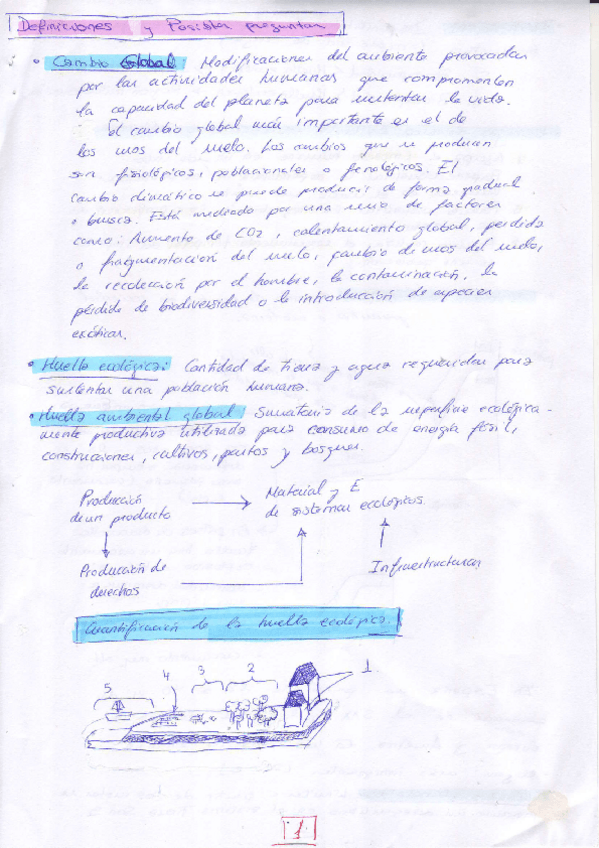 Definiciones y Posibles preguntas
• Cambio Global: Modificaciones del ambiente provocadas
por las actividades humanas que comprometen
la capacidad del planeta para sustentar la vida.
El cambio global más importante es el de
los usos del suelo. Los cambios que se producen
son fisiológicos, poblacionales o fenológicos. El
cambio climático se puede producir de forma gradual
o brusca. Está mediado por una serie de factores
como: Aumento de CO2, calentamiento global, perdida
o fragmentación del suelo, cambio de usos del suelo,
la recolección por el hombre, la contaminación, la
pérdida de biodiversidad o la introducción de especies
exóticas.
• Huella ecológica: Cantidad de tierra y agua requeridas para
sustentar una población humana.
• Huella ambiental global: Sumatoria de la superficie ecológica-
mente productiva utilizada para consumo de energía fósil,
construcciones, cultivos, pastos y bosques.
Producción de un producto → Material y E de sistemas ecológicos
Producción de deshechos
Infraestructuras
Cuantificación de la huella ecológica.
5 4 3 2 1
1